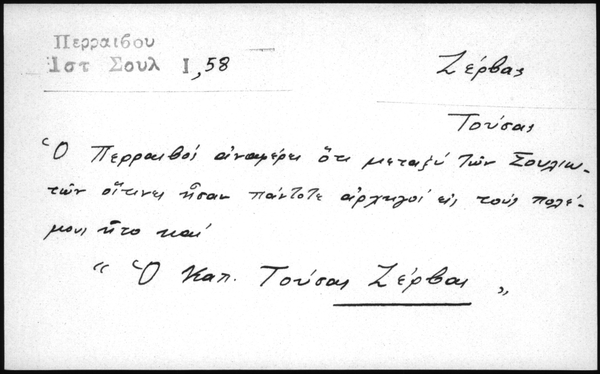 Περραιβου
Ιστ Σουλ Ι,58
Ζέρβας
Τούσας
Ὁ Περραιβός ἀναφέρει ὅτι μεταξύ τῶν Σουλιω-
τῶν οἵτινες ἦσαν πάντοτε ἀρχηγοί εἰς τούς πολέ-
μους ἦτο καί
“ Ὁ Καπ. Τούσας Ζέρβας „